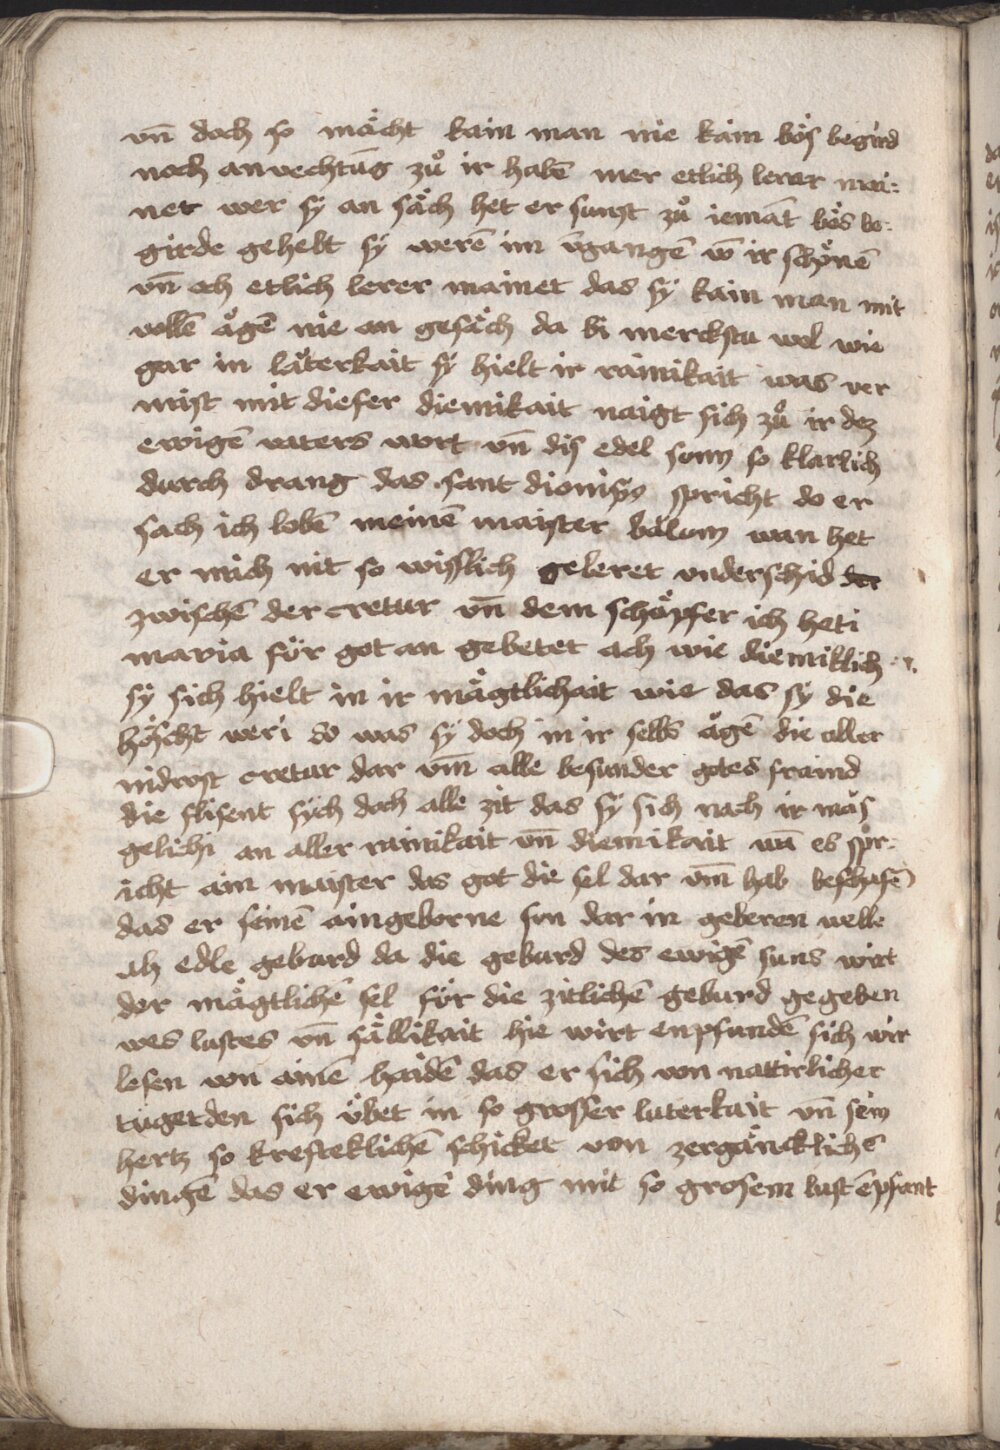 vn̄ doch so mācht kain man nie kain bȯ̈s begird
noch anvechtūg zů ir habē mer etlich lerer mai⸗
net wer sy an sāch het er sunst zů iemāt bȯ̈s be⸗
girde gehebt sy werē im v̄gangē vō ir schȯ̈nē
vn̄ och etlich lerer mainet das sy kain man mit
vollē āgē nie an gesāch da bi merckstu wol wie
gar in lāterkait sy hielt ir rainikait was ver
mist mit diefer diemikait naigt sich zů ir dez
ewigē vaters wort vn̄ dis edel sonn so klarlich
durch drang das sant dionisyͦ spricht do er
sach ich lobē meinē maister wan het
er mich nit so wislich geleret vnderschid der
zwischē der cretur vn̄ dem schȯ̈pfer ich heti
maria fȯ̈r got an gebetet ach wie diemiklich
sy sich hielt in ir māgtlichait wie das sy die
hȯ̈scht weri so was sy doch in ir selbs āgē die aller
nidrost cretur dar vm̄ alle besunder gotes fraind
die flisent sych doch alle zit das sy sich nach ir mās
gelichi an aller rainikait vn̄ diemikait wā es spr⸗
icht ain maister das got die sel dar vm̄ hab beschafē
das er seinē aingeborne sun dar in geberen welle
ah edle geburd da die geburd des ewigē suns wirt
der māgtlichē sel fȯ̈r die zitlichē geburd gegeben
wes lustes vn̄ sāllikait hie wirt enpfundē sich wir
lesen von ainē haidē das er sich von nattirlicher
tugetden sich ȯ̈bet in so grosser luterkait vn̄ sein
hertz so krefteklichē schicket von zergāncklichē
dingē das er ewigē ding mit so grosem lust ēpfant